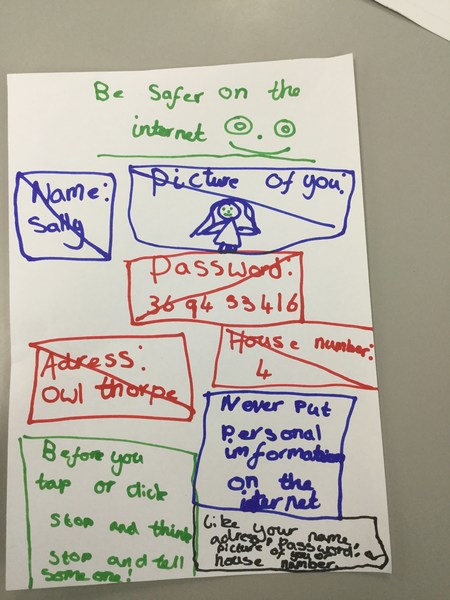 Be Safer on the
internet
Name:
Sally
Picture of you:
Password:
36 94 53 416
Adress:
Owl thorpe
House number:
4
Never put
personal
information
on the
internet
Before you
tap or click
stop and think
stop and tell
someone!
like your name,
adress, password,
picture of you or
house number.